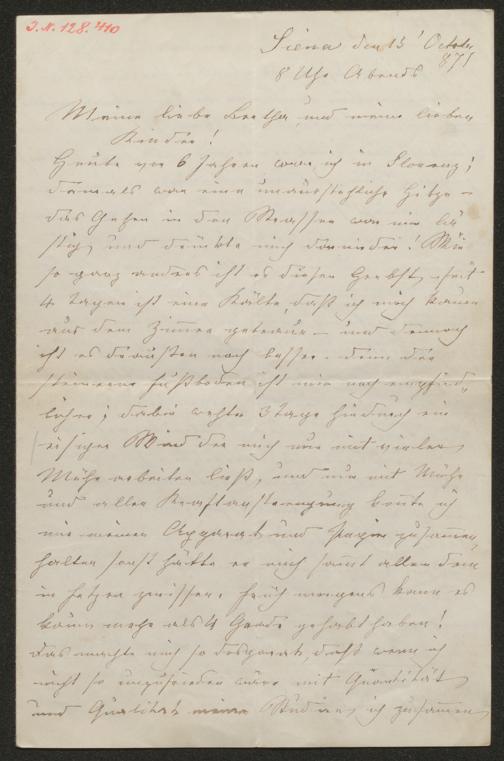 J.N. 128.410
Siena den 13' October
871
8 Uhr Abends
Meine liebe Bertha und meine lieben
Kinder!
Heute vor 6 Jahren war ich in Florenz;
damals war eine unausstehliche Hitze –
das Gehen in den Strassen war mir lä
stig, und drückte mich darnieder! Wie
so ganz anders ist es diesen Herbst – seit
4 Tagen ist eine Kälte, daß ich mich kaum
aus dem Zimmer getraue – und dennoch
ist es draußen noch besser – denn der
steinerne Fußboden ist mir noch empfind„
licher; dabei wehte 3 Tage hindurch ein
eisiger Wind der mich nur mit vieler
Mühe arbeiten ließ, und nur mit Mühe
und aller Kraftanstrengung konte ich
mir meinen Apparat und Papier zusammen„
halten sonst hätte er mich sammt allen dem
in Fetzen zerrissen. Früh morgens kann es
kaum mehr als 4 Grade gehabt haben!
das machte mich so desperat, daß wenn ich
nicht so unzufrieden wäre mit Quantität
und Qualität meiner Studien, ich zusammen